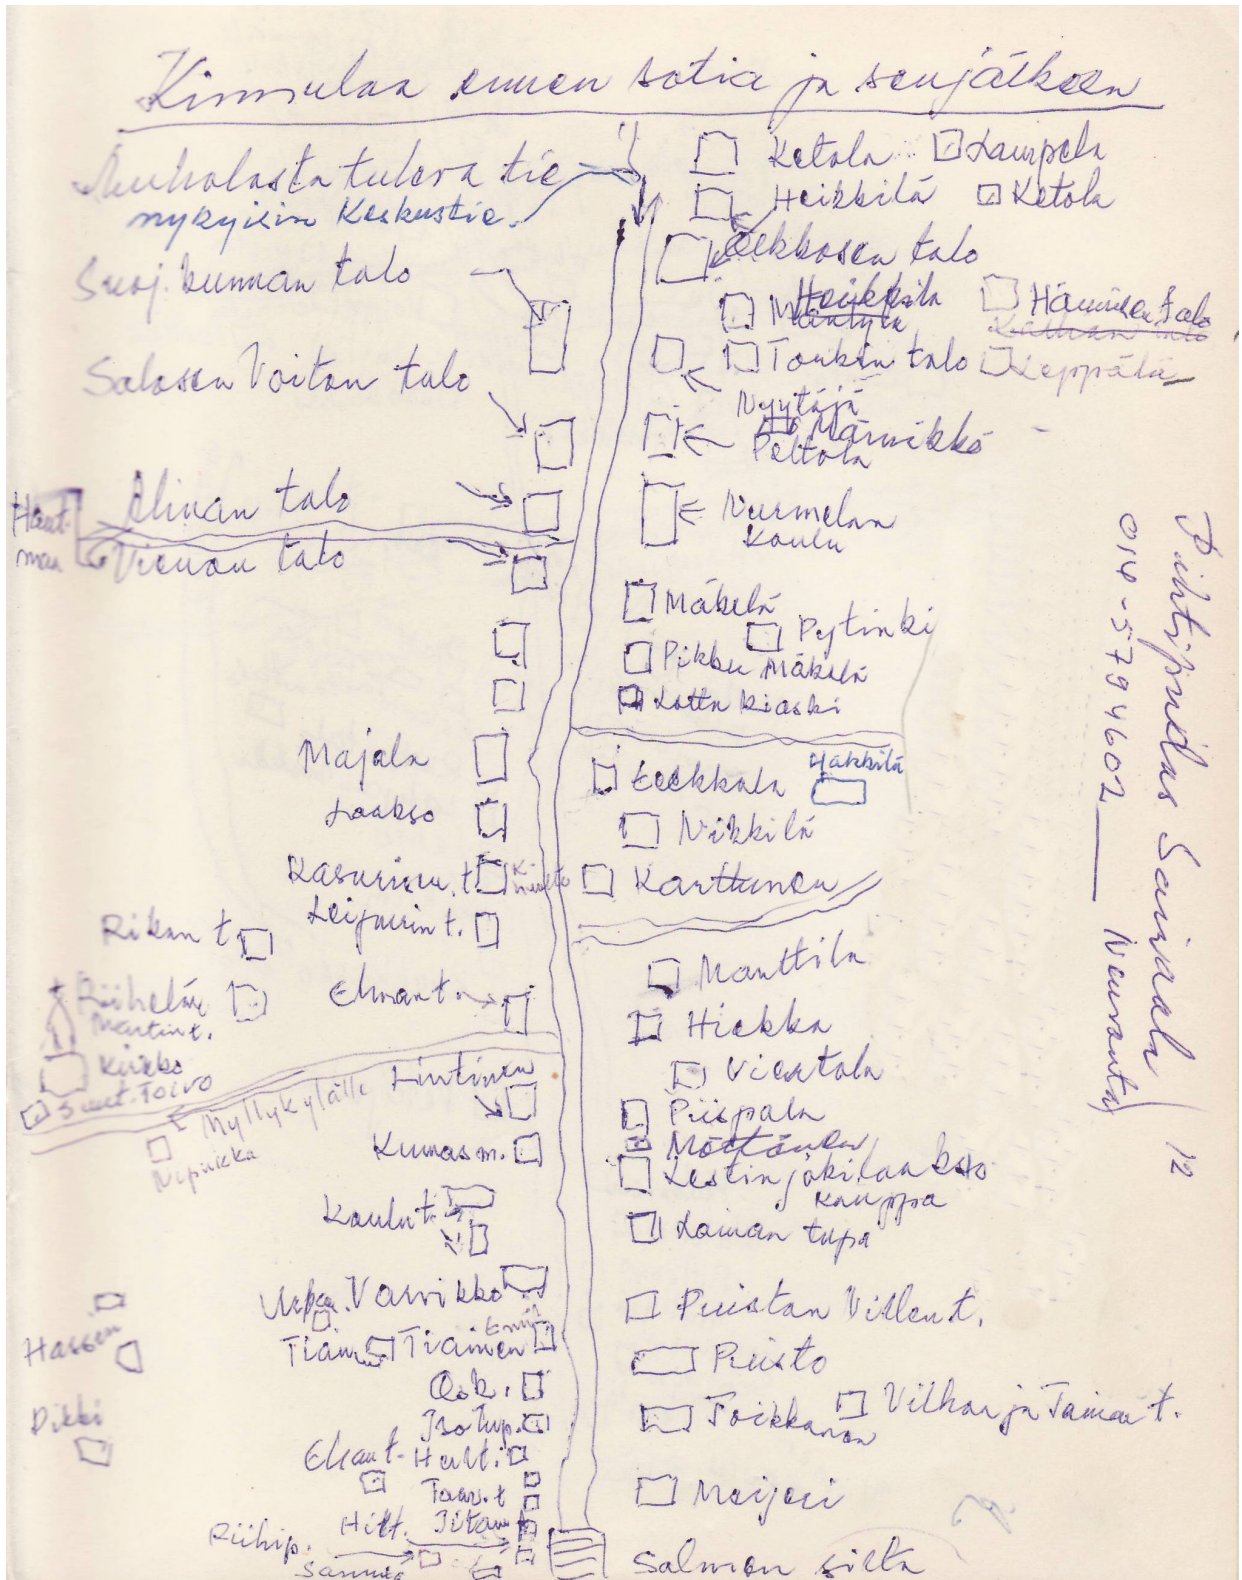 Kinnulaa ennen sotia ja senjälkeen
Muholasta tuleva tie
nykyisin Keskustie.
Suoj. kunnan talo
Salosen Voiton talo
Alinan talo
Haut.
maa
Vienon talo
Majala
Laakso
Kasurisen. t.
Leipurin t.
Rikun t.
Riihelän
Martin t.
Elman t.
Kirkko
Suut. Toivo
Myllykylälle
Lintinen
Kunnas m.
Koulu t.
Varvikko
Emil
Tiain.
Tiainen
Osk.
Iso tup.
Hassin
Pikki
Taav. t
Hilt.
Riihip.
Ketola
Lampela
Heikkilä
Ketola
Leikkosen talo
Heikkilä
Mäntylä
Hännisen talo
Toukin talo
Leppälä
Nyytäjä
Männikkö
Peltola
Nurmelan
Koulu
Mäkelä
Pytinki
Pikku Mäkelä
Lotta kioski
Leikkala
Yäkkilä
Nikkilä
Karttunen
Manttila
Hiekka
Viertola
Piispala
Möttönen
Lestinjokilaakso
kauppa
Lainan tupa
Puiston Villen t.
Puisto
Toikkanen
Vilhon ja Taimin t.
Meijeri
Salmen silta
Pihtipudas Sairala
014-5794602
Neuvonta
12